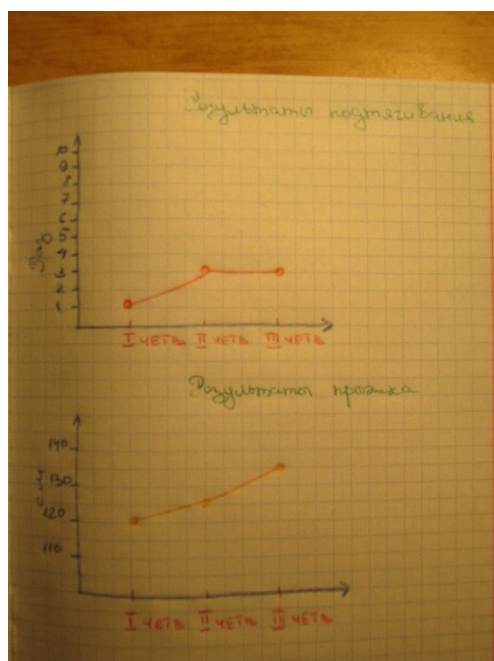 Результаты подтягивания
10
9
8
7
6
5
4
3
2
1
Раз
I ЧЕТВ II ЧЕТВ III ЧЕТВ
Результаты прыжка
140
130
120
110
см
I ЧЕТВ II ЧЕТВ III ЧЕТВ